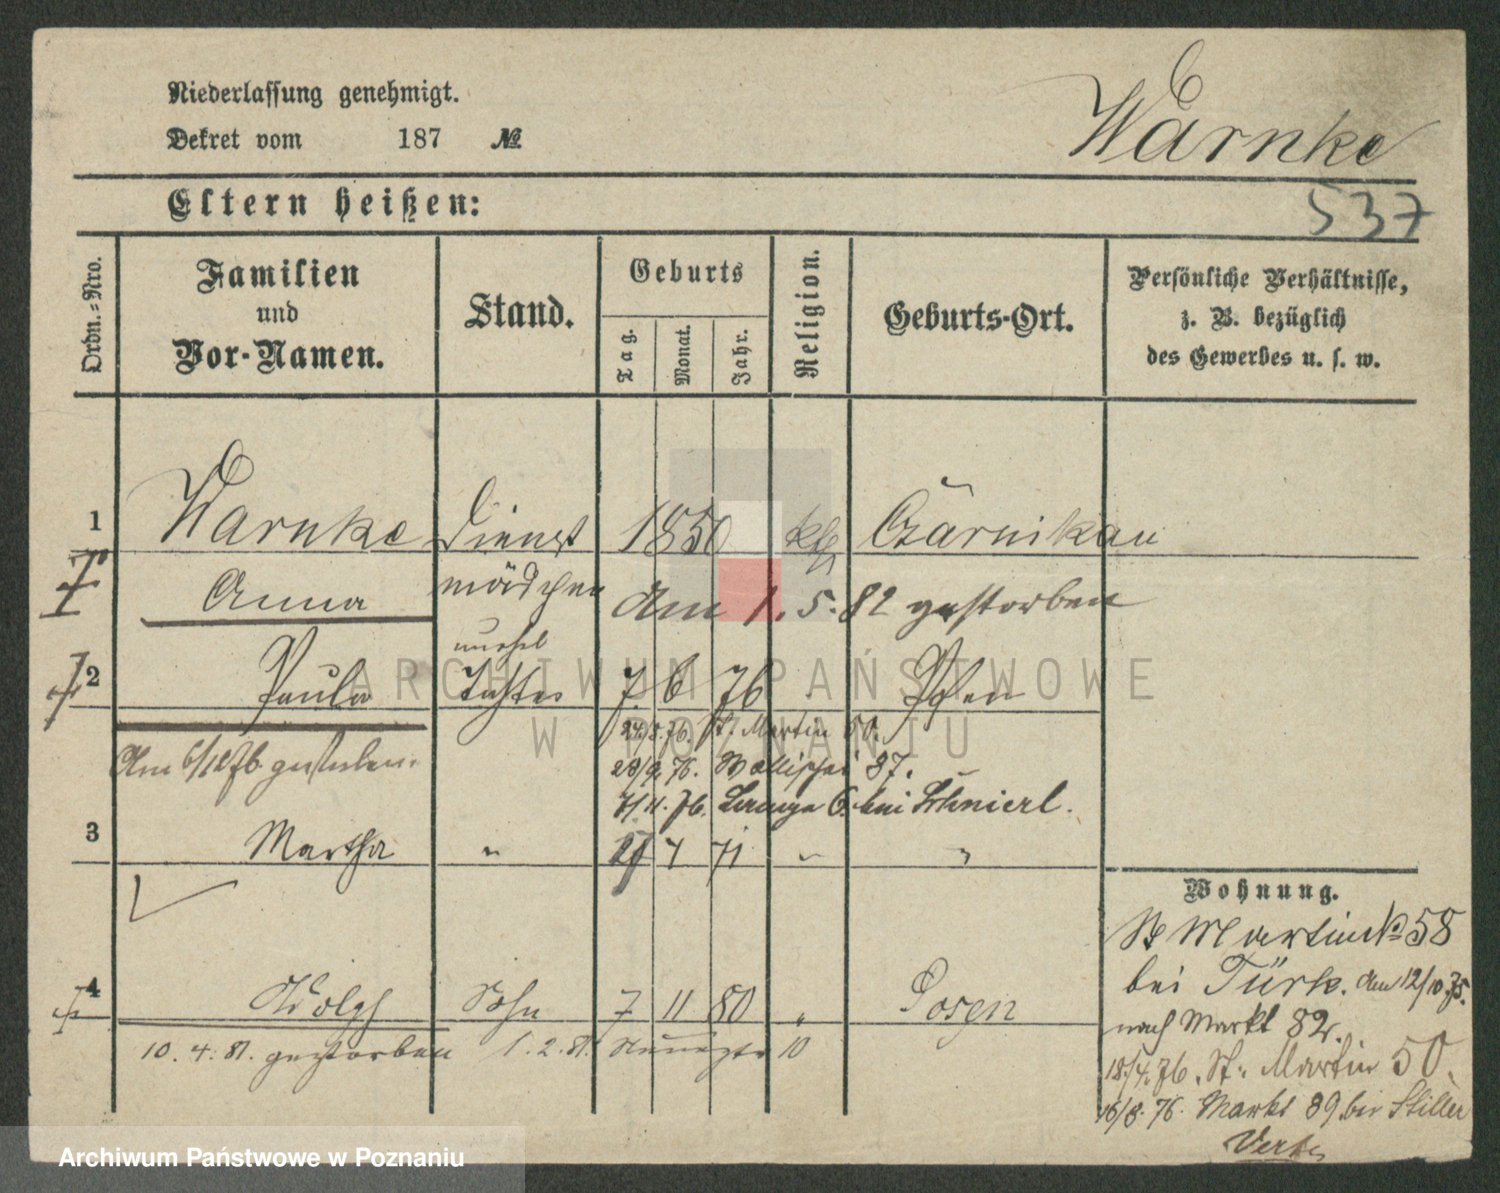 Niederlassung genehmigt.
Dekret vom 187 №
Warnke
Eltern heißen:
537
Ordn.-Nro.
Familien
und
Vor-Namen.
Stand.
Geburts
Tag.
Monat.
Jahr.
Religion.
Geburts-Ort.
Persönliche Verhältnisse,
z. B. bezüglich
des Gewerbes u. s. w.
1 Warnke Dienst 1850 kth Czarnikau
Anna mädchen am 1. 5. 82 gestorben
unehel
2 Paula Tochter 7 6 76 Posen
24/8. 76. St. Martin 50.
Am 6/12 76 gestorben.
28/9. 76. Wallischei 87.
7/11. 76. Lange 6. bei Schmierl.
3 Martha " 4 71 " "
Wohnung.
St Martin № 58
bei Türk. am 12/10 75.
4 Adolph Sohn 7 11 80 " Posen
nach Markt 82.
10. 4. 81. gestorben 1. 2. 81. 10
18/4. 76. St. Martin 50.
16/8. 76. Markt 89 bei Stiller
ARCHIWUM PAŃSTWOWE
W POZNANIU
Archiwum Państwowe w Poznaniu